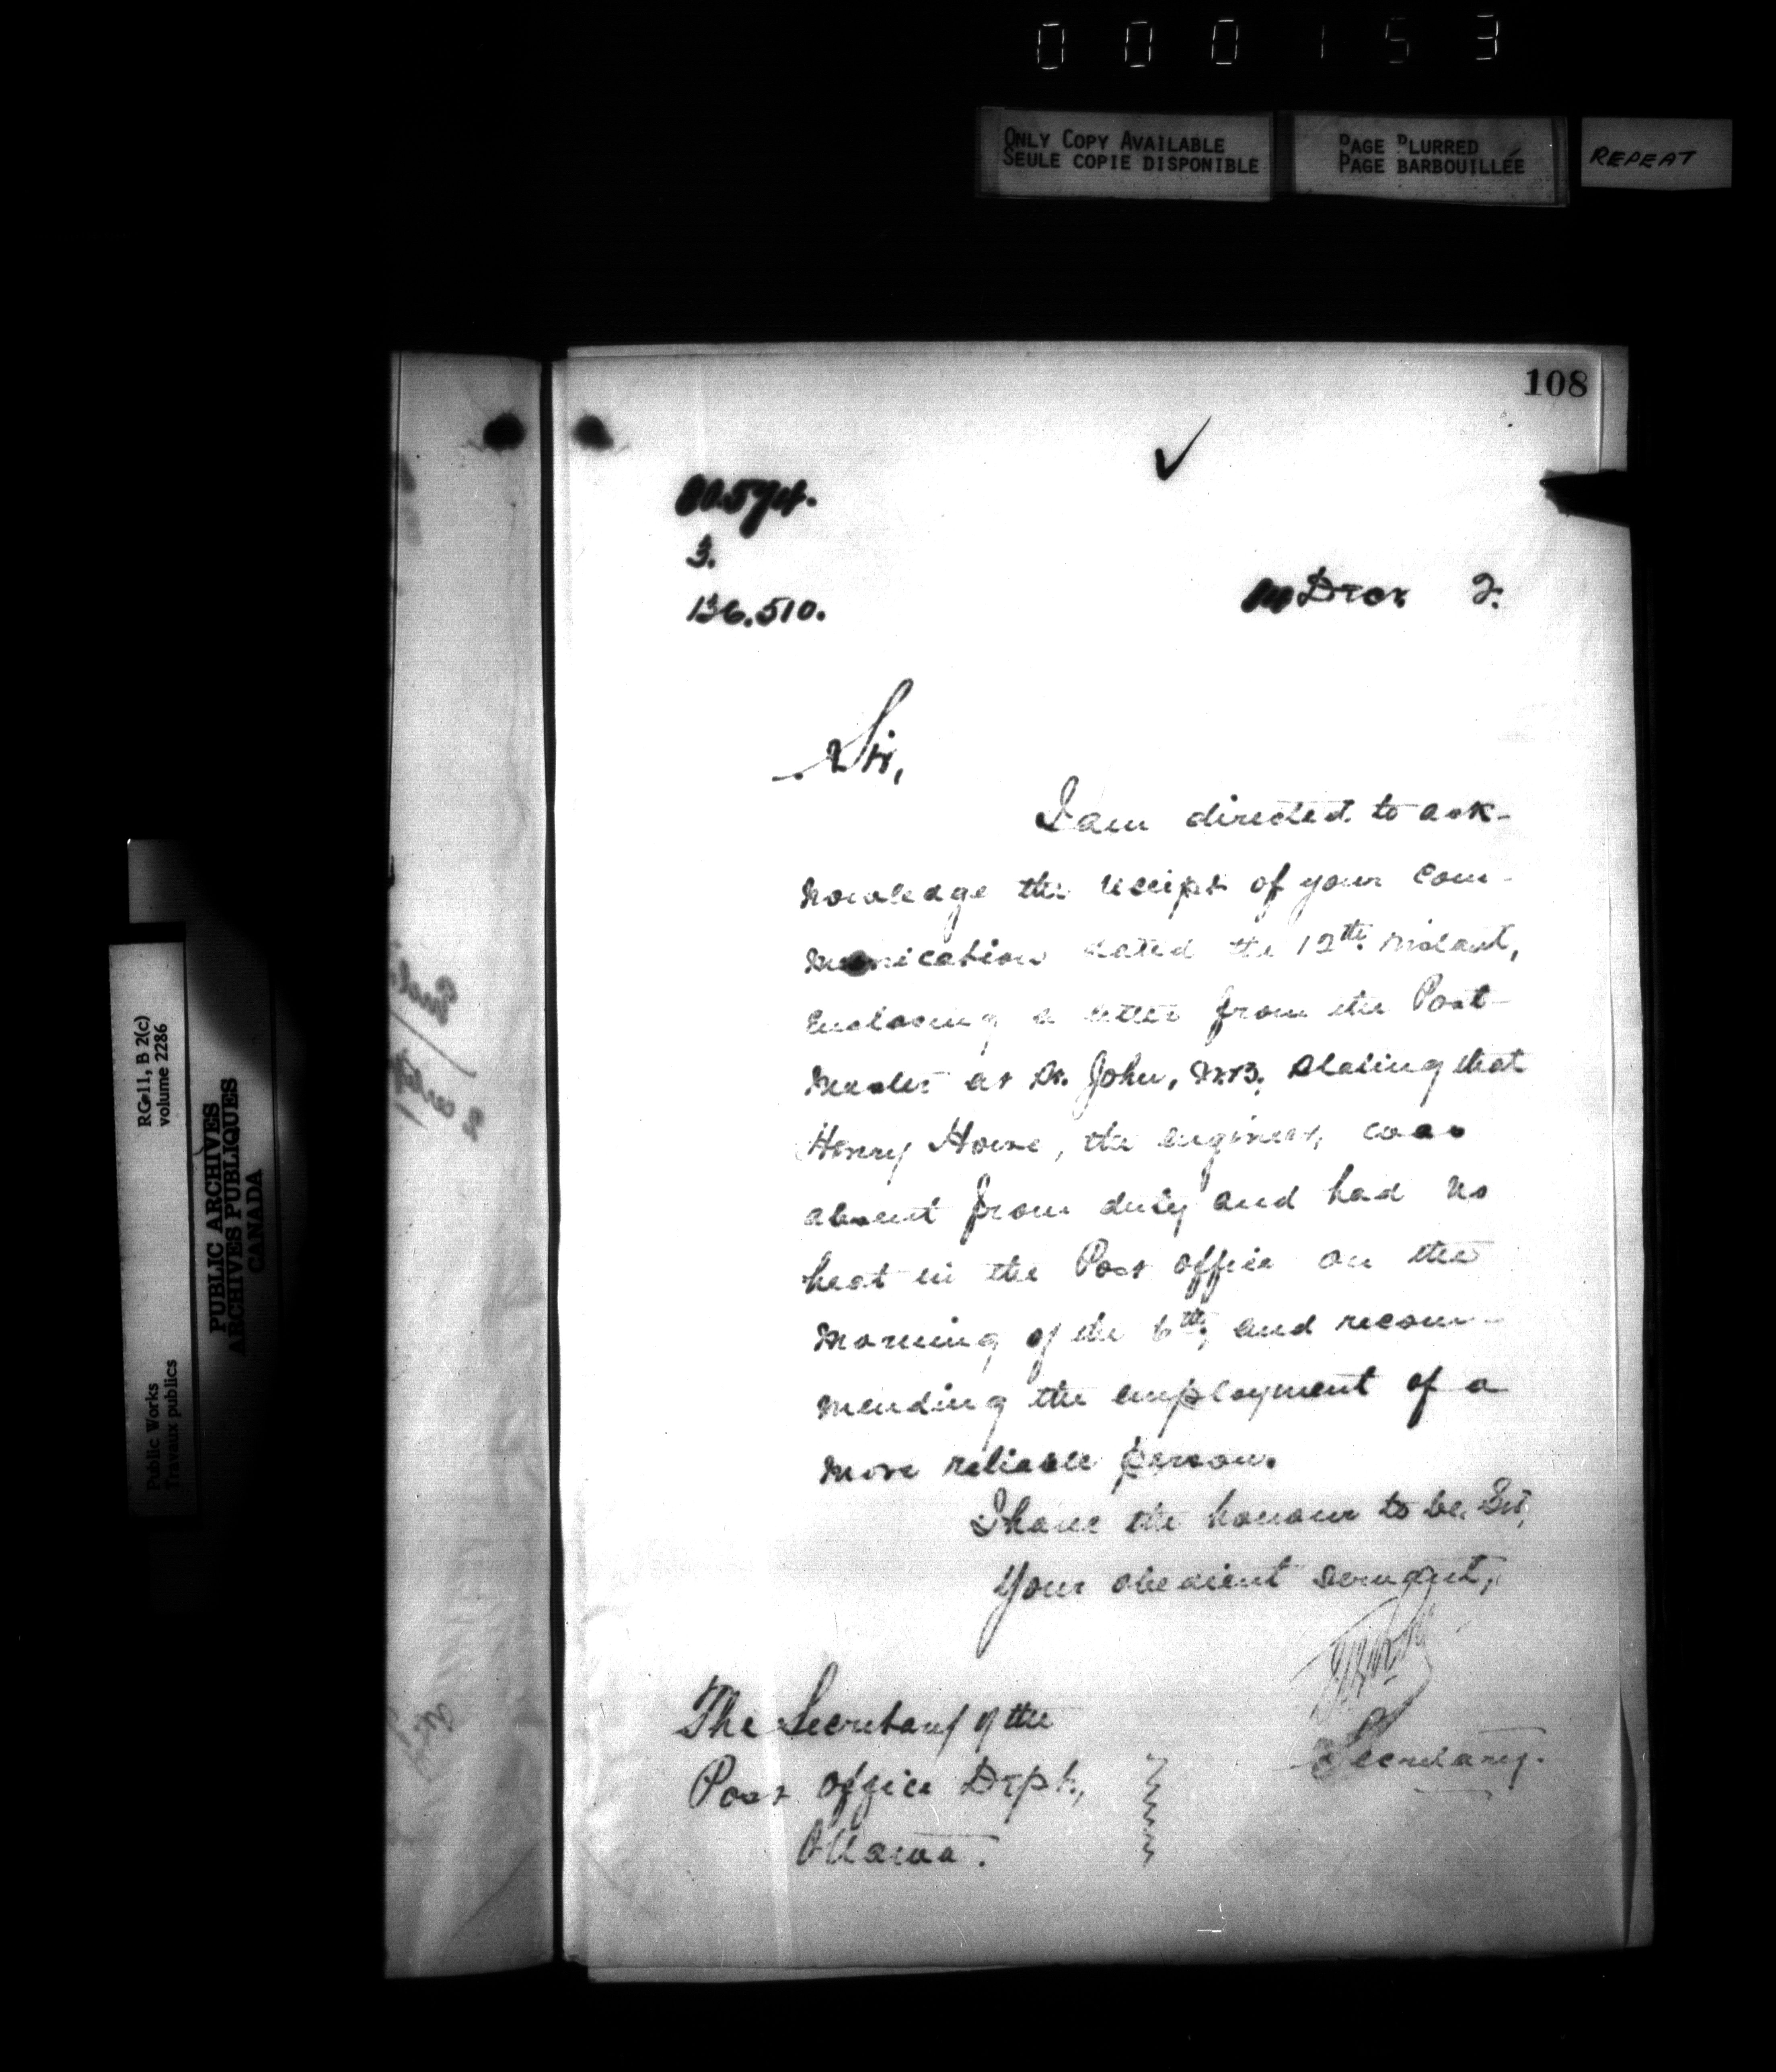 000153
ONLY COPY AVAILABLE
SEULE COPIE DISPONIBLE
PAGE BLURRED
PAGE BARBOUILLÉE
REPEAT
108
3.
136.510.
Sir,
I am directed to ack-
nowledge the receipt of your com-
munication dated the 12th instant,
enclosing a letter from the Post-
master at St. John, N.B. stating that
Henry Horne, the engineer, was
absent from duty and had no
heat in the Post Office on the
morning of the 6th, and recom-
mending the employment of a
more reliable person.
I have the honour to be, Sir,
Your obedient servant,
Secretary.
The Secretary of the
Post Office Dept.,
Ottawa.
RG 11, B 2(c)
volume 2286
PUBLIC ARCHIVES
ARCHIVES PUBLIQUES
CANADA
Public Works
Travaux publics